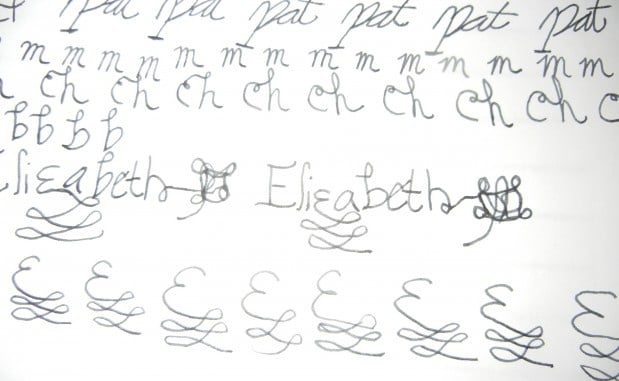 Pat Pat Pat Pat Pat Pat
m m m m m m m m m m m m m m
ch ch ch ch ch ch ch ch c
b b b b
Elizabeth Elizabeth